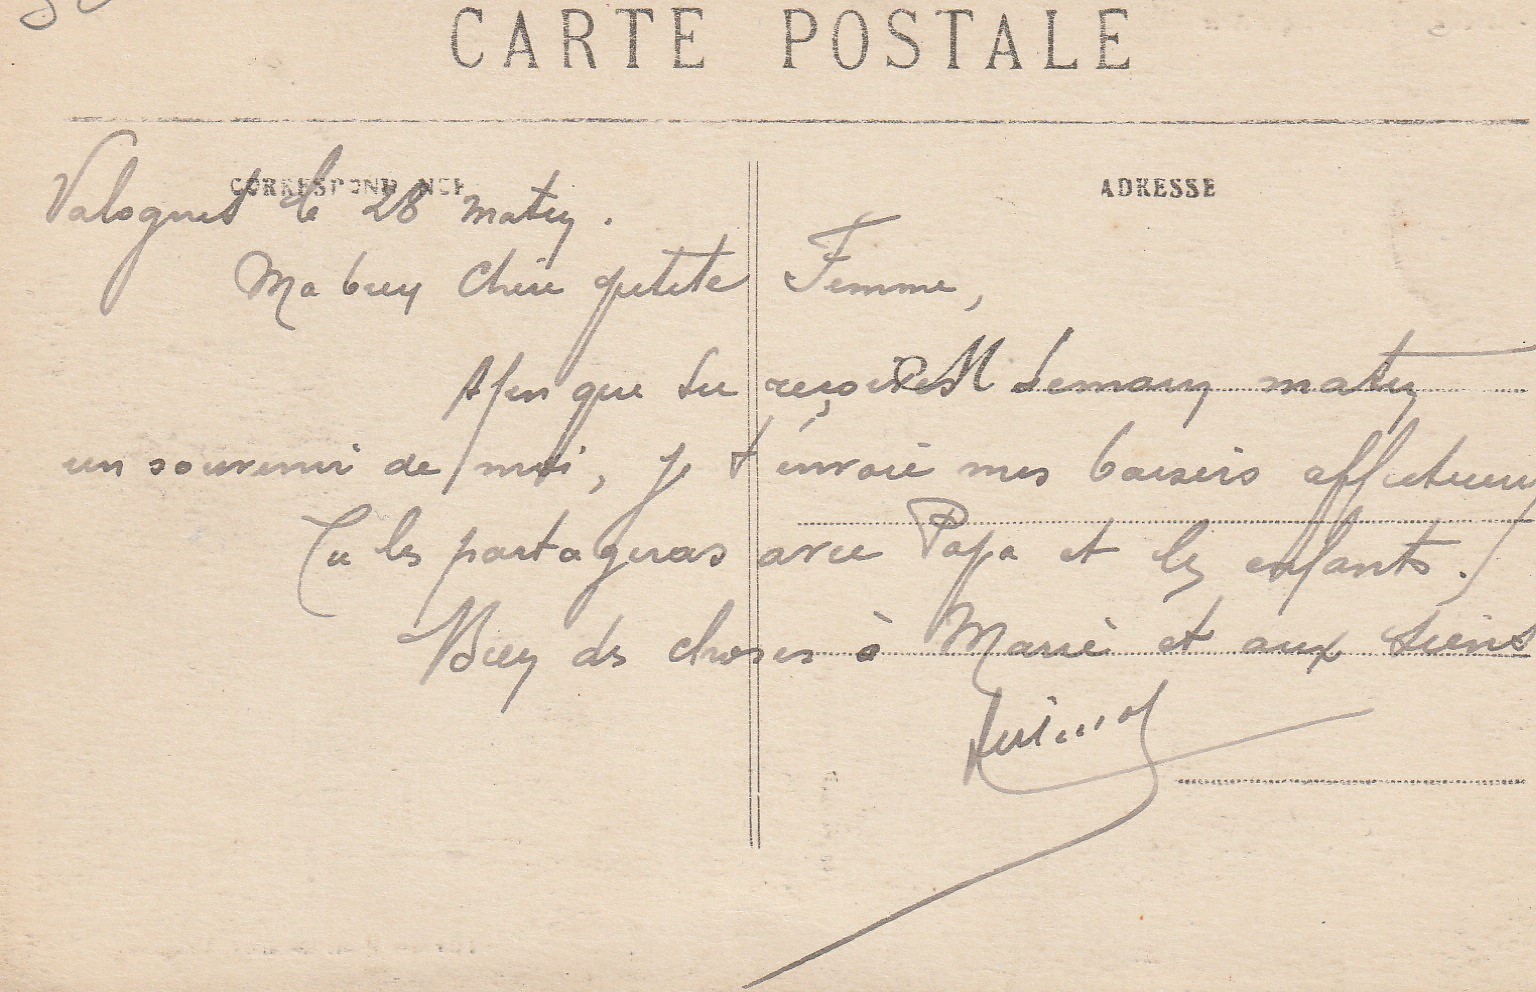 CARTE POSTALE
CORRESPONDANCE
ADRESSE
Valognes le 28 matin.
Ma bien chère petite Femme,
Afin que tu reçoives demain matin
un souvenir de moi, je t'envoie mes baisers affectueux
Tu les partageras avec Papa et les enfants.
Bien des choses à Marie et aux siens